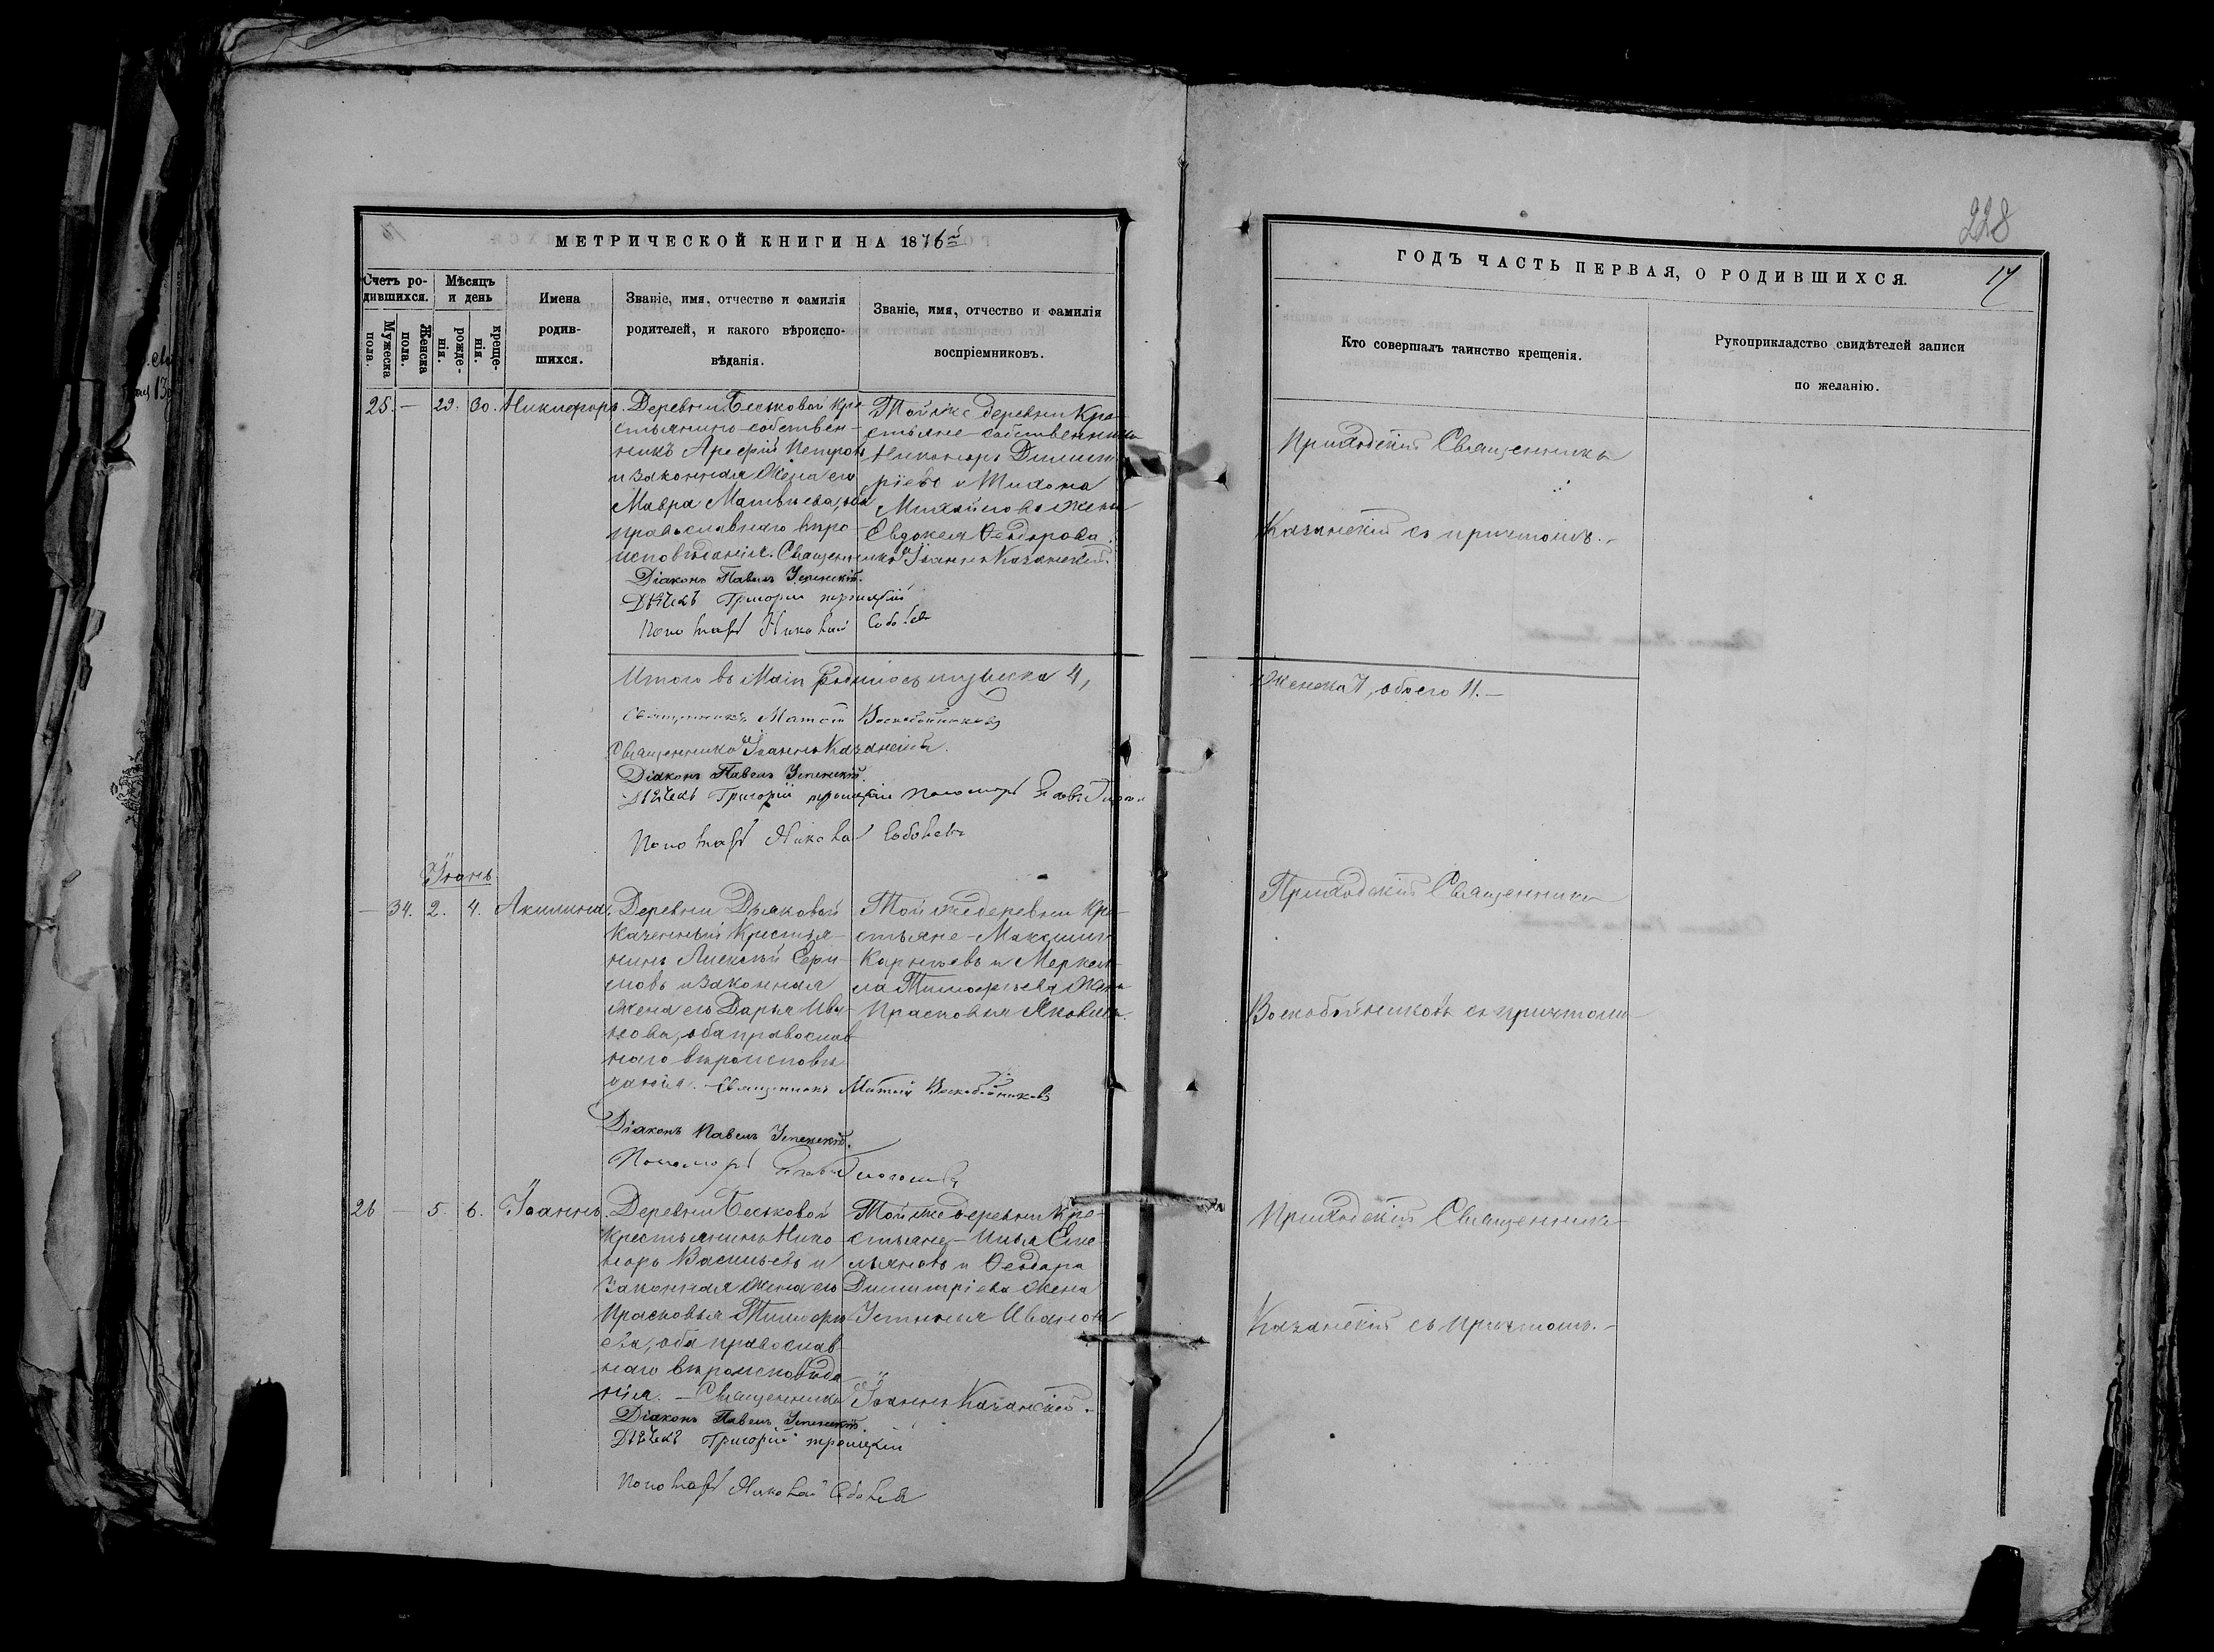 МЕТРИЧЕСКОЙ КНИГИ НА 1876й
Счетъ ро-
дившихся.
Мужеска
пола.
Женска
пола.
Мѣсяцъ
и день
рожде-
нія.
креще-
нія.
Имена
родив-
шихся.
Званіе, имя, отчество и фамилія
родителей, и какого вѣроиспо-
вѣданія.
Званіе, имя, отчество и фамилія
воспріемниковъ.
25. — 29. 30. Никифоръ.
Деревни Беськовой Кре
стьянинъ-собствен-
никъ Арефій Петровъ
и законная жена его
Мавра Матвѣева, оба
православнаго вѣро-
исповѣданія. Священникъ Іоаннъ Казанскій
Діаконъ Павелъ Успенскій.
Дьячекъ Григорий троицкий
Пономарь Николай Соболев
Той же деревни Кре-
стьяне-собственники
Никаноръ Димит
ріевъ и Тихона
Михайлова жена
Евдокея Ѳеодорова.
Итого въ Маіи родилось мужеска 4,
Священникъ Матѳій Воскобойниковъ
Священникъ Іоаннъ Казанскій.
Діаконъ Павелъ Успенскій.
Дьячекъ Григорій троицкій Пономарь
Пономарь Николай Соболевъ
Іюнь
— 34. 2. 4. Акилина.
Деревни Дьяковой
Казенный Крестья-
нинъ Алексѣй Сер
ковъ и законная
жена его Дарья Ива-
нова, оба православ-
наго вѣроисповѣ-
данія. — Священникъ Матѳій Воскобойниковъ
Діаконъ Павелъ Успенскій.
Пономарь
Той же деревни Кре-
стьяне — Максимъ
Карнѣевъ и Меркел-
ла Тимофѣева Жена
Прасковья Яковлева.
26 — 5. 6. Іоаннъ.
Деревни Беськовой
Крестьянинъ Ника-
норъ Васильевъ и
законная жена его
Прасковья Тимофѣ-
ева, оба православ-
наго вѣроисповѣда
нія. — Священникъ Іоаннъ Казанскій.
Діаконъ Павелъ Успенскій.
Дьячекъ Григорій троицкій
Пономарь Николай Соболев
Той же деревни Кре-
стьяне — Илья Еме-
льяновъ и Ѳеодора
Димитріева Жена
Устинья Иванова
228
ГОДЪ ЧАСТЬ ПЕРВАЯ, О РОДИВШИХСЯ. 17
Кто совершалъ таинство крещенія.
Рукоприкладство свидѣтелей записи
по желанію.
Приходскій Священникъ
Казанскій съ причтомъ. —
Женска 7, обоего 11. —
Приходскій Священникъ
Воскобойниковъ съ причтомъ
Приходскій Священникъ
Казанскій съ причтомъ. —